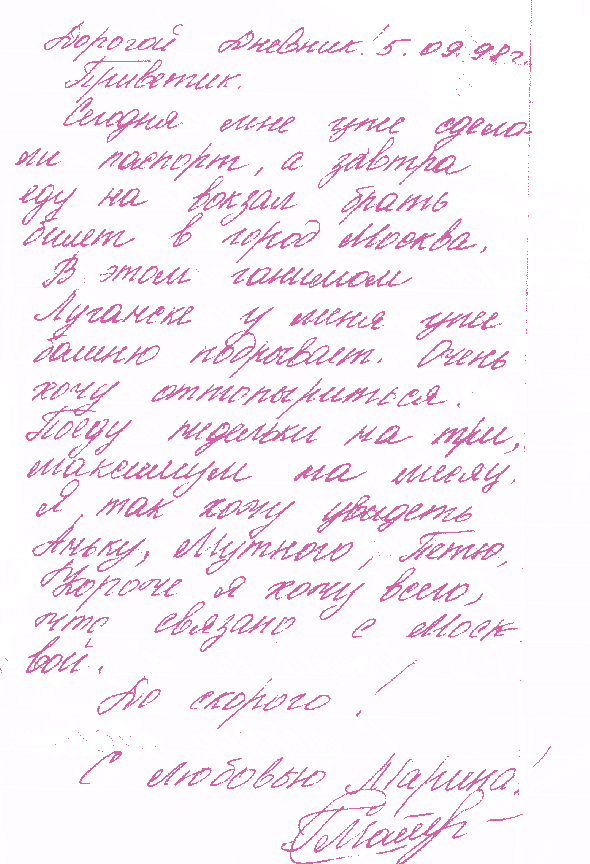 Дорогой Дневник! 5.09.98г.
Приветик.
Сегодня мне уже сдела-
ли паспорт, а завтра
еду на вокзал брать
билет в город Москва.
В этом ганимом
Луганске у меня уже
башню подрывает. Очень
хочу оттопыриться.
Поеду недельки на три,
максимум на месяц.
Я так хочу увидеть
Аньку, Мутного, Петю,
Короче я хочу всего,
что связано с Моск
вой.
До скорого!
С любовью Марина!